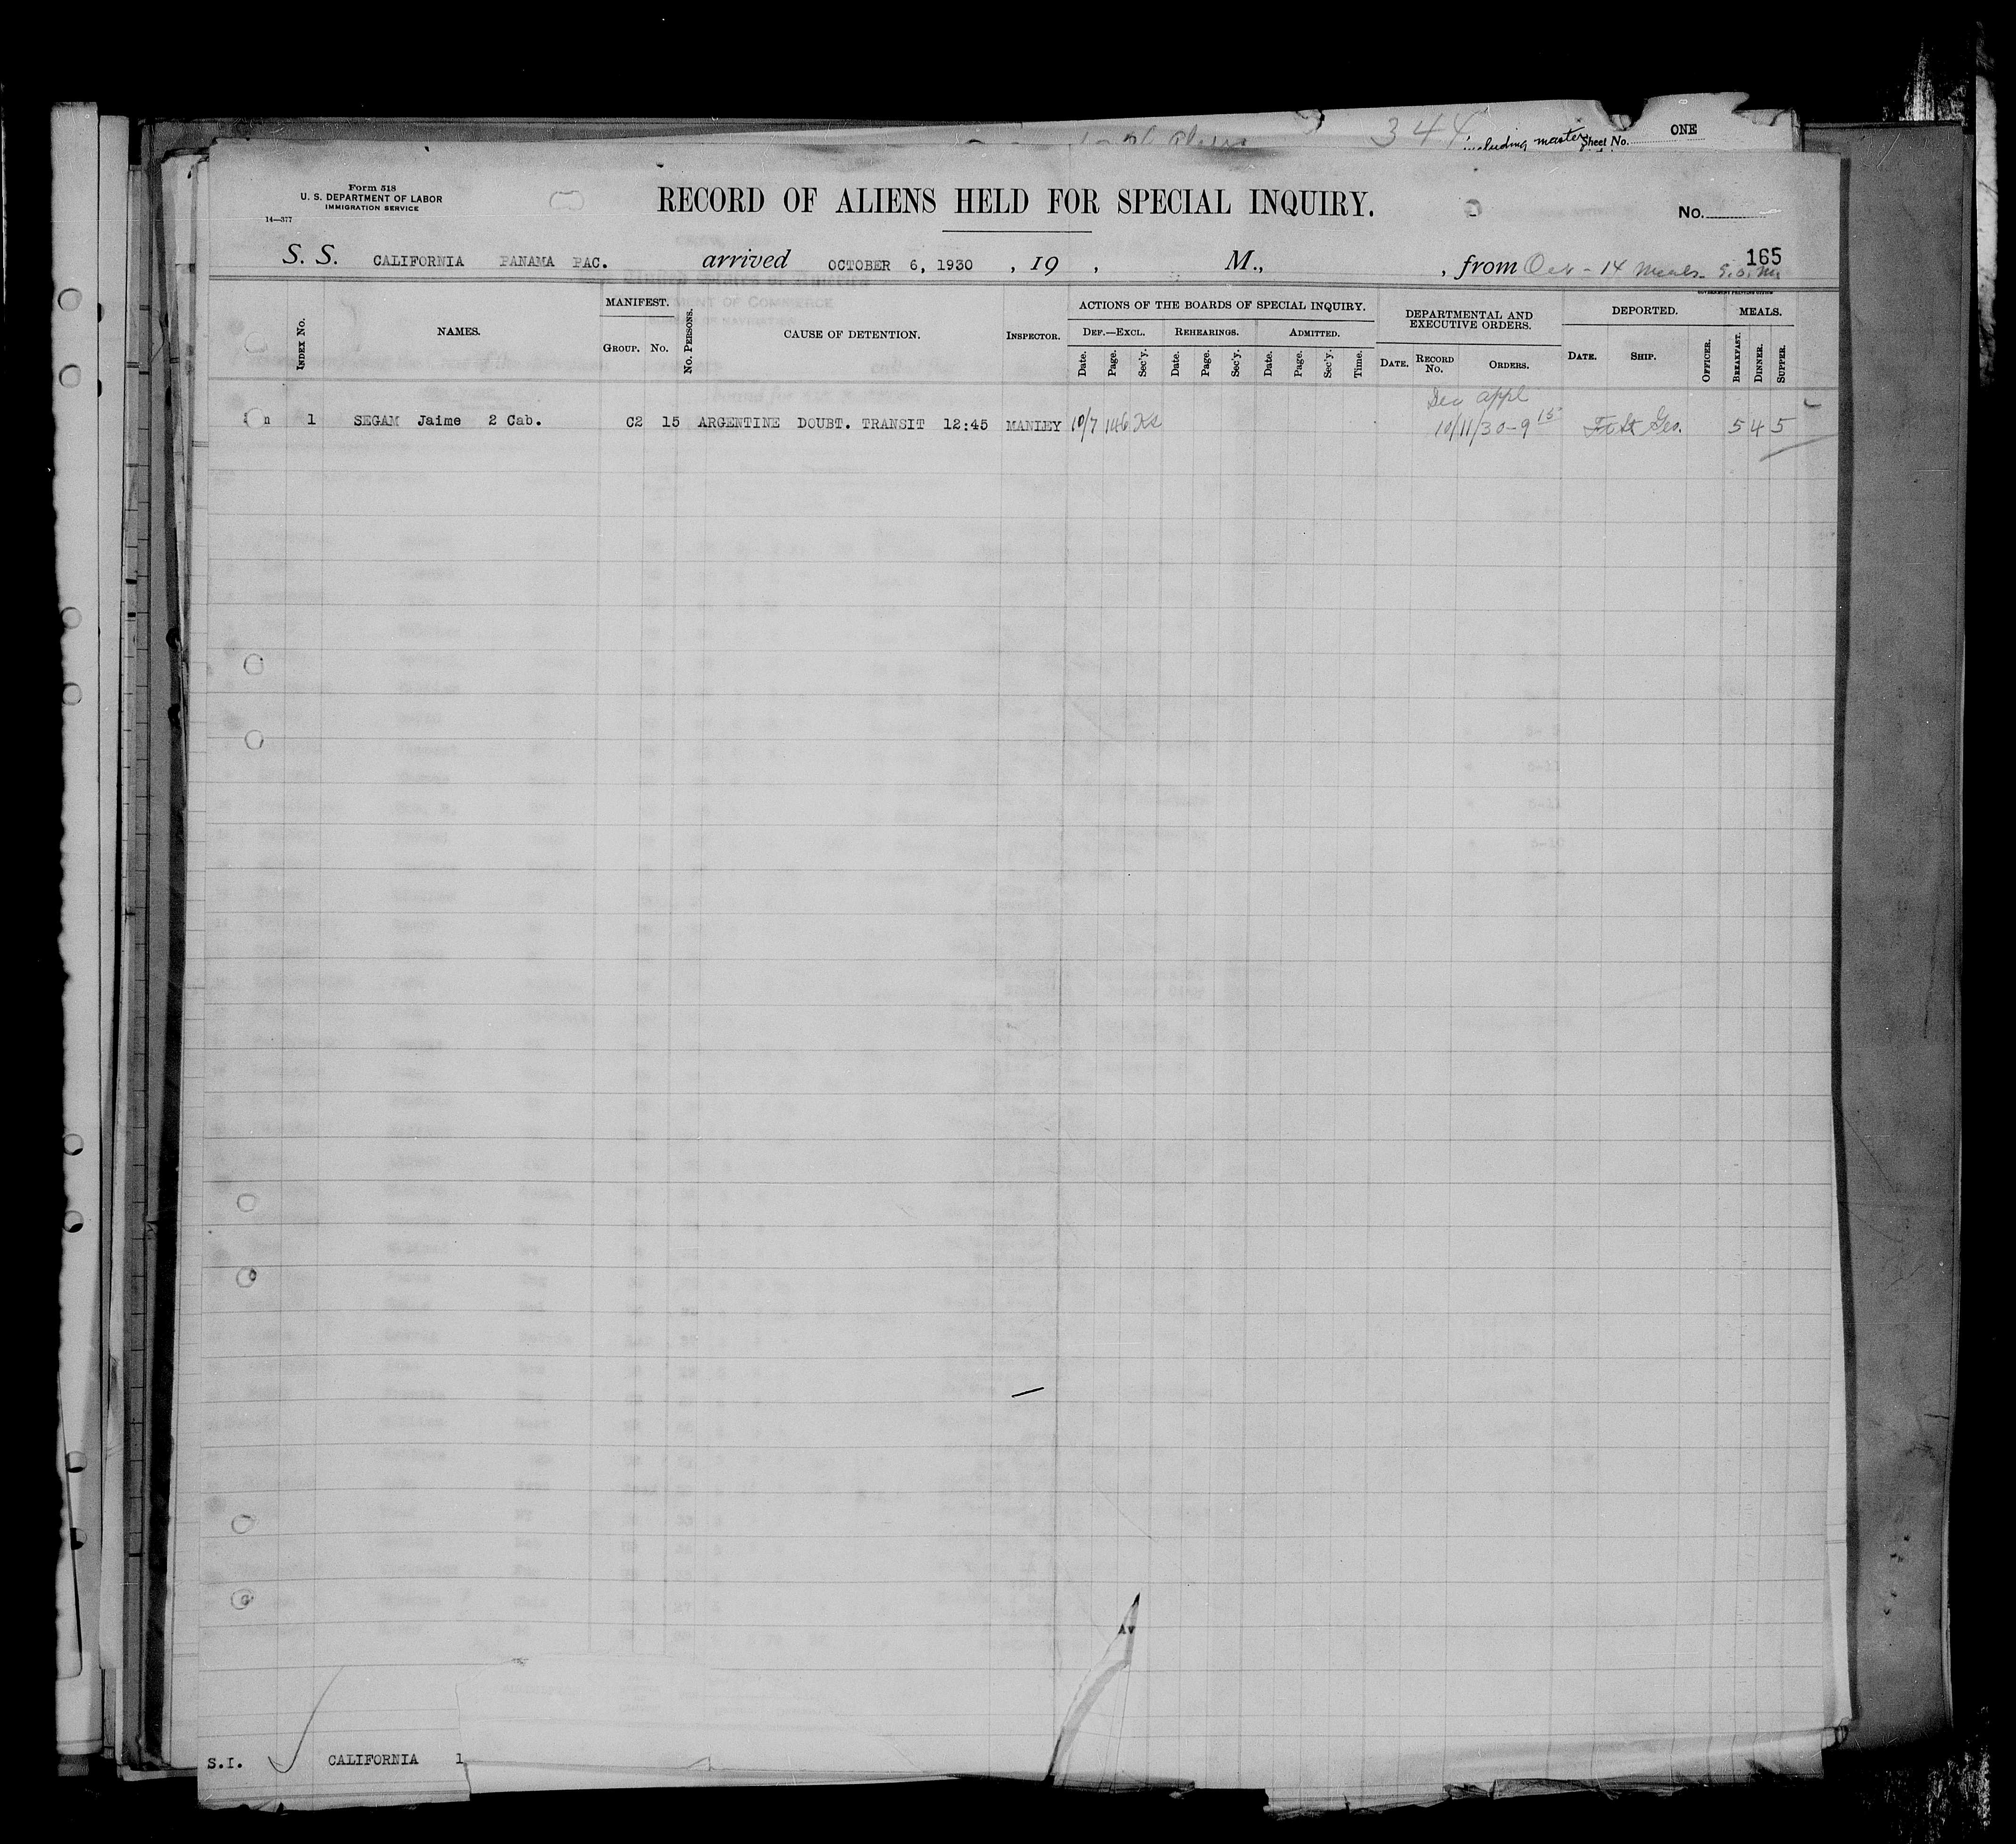 344
including master Sheet No. ONE
Form 518
U. S. DEPARTMENT OF LABOR
IMMIGRATION SERVICE
14—377
RECORD OF ALIENS HELD FOR SPECIAL INQUIRY.
No.
165
S. S. CALIFORNIA PANAMA PAC. arrived OCTOBER 6, 1930 , 19 , M., , from 14 meals
GOVERNMENT PRINTING OFFICE
INDEX NO. NAMES. MANIFEST. GROUP. NO. NO. PERSONS. CAUSE OF DETENTION. INSPECTOR. ACTIONS OF THE BOARDS OF SPECIAL INQUIRY. DEF.—EXCL. Date. Page. Sec'y. REHEARINGS. Date. Page. Sec'y. ADMITTED. Date. Page. Sec'y. Time. DEPARTMENTAL AND EXECUTIVE ORDERS. DATE. RECORD NO. ORDERS. DEPORTED. DATE. SHIP. OFFICER. MEALS. BREAKFAST. DINNER. SUPPER.
appl
n 1 SEGAM Jaime 2 Cab. C2 15 ARGENTINE DOUBT. TRANSIT 12:45 MANLEY 10/7 146 10/11/30-9 15 Ft St Geo. 5 4 5
Av
S.I. CALIFORNIA 1